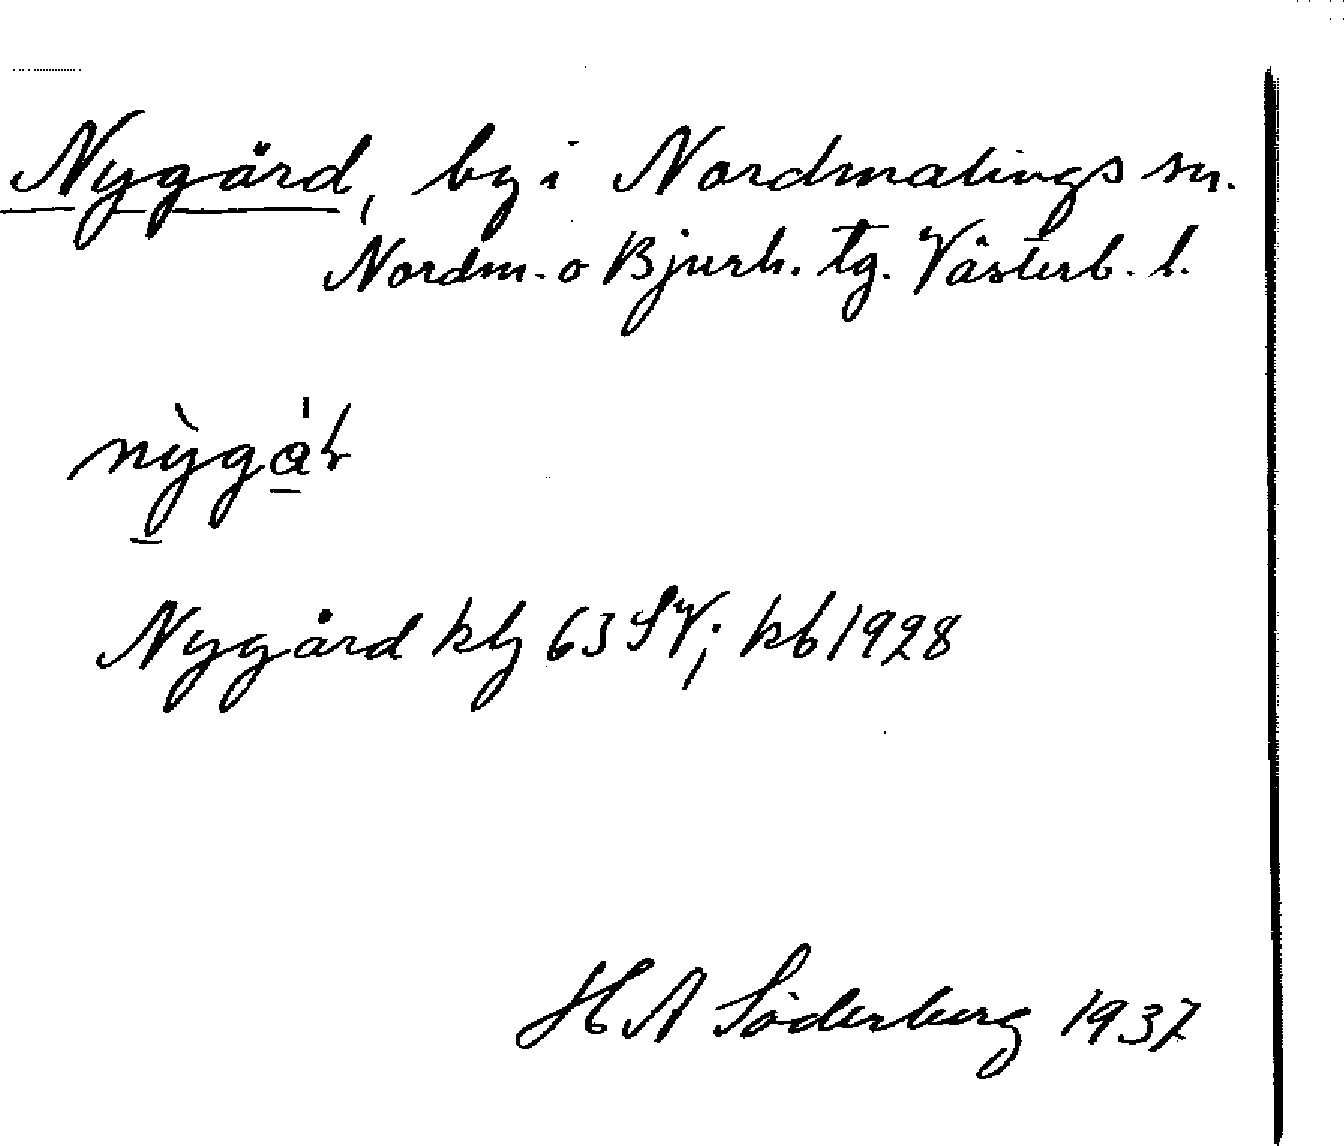 Nygård, by i Nordmalings sn.
Nordm. o Bjurh. tg. Västerb. l.
nỳgár
Nygård kbl 63 SV; kb 1928
H A Söderberg 1937